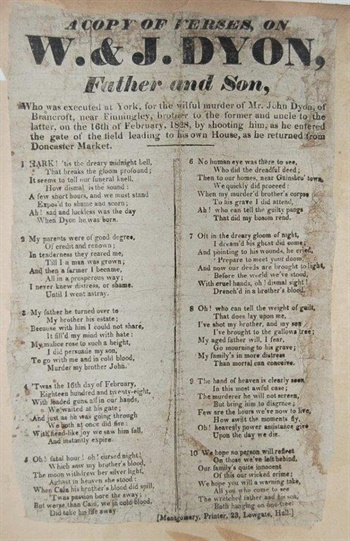 A COPY OF VERSES, ON
W. & J. DYON,
Father and Son,
Who was executed at York, for the wilful murder of Mr. John Dyon, of
Brancroft, near Finningley, brother to the former and uncle to the
latter, on the 16th of February, 1828, by shooting him, as he entered
the gate of the field leading to his own House, as he returned from
Doncaster Market.
1 HARK! 'tis the dreary midnight bell,
That breaks the gloom profound;
It seems to toll our funeral knell,
How dismal is the sound:
A few short hours, and we must stand
Expos'd to shame and scorn;
Ah! sad and luckless was the day
When Dyon he was born.
2 My parents were of good degree,
Of credit and renown;
In tenderness they reared me,
Till I a man was grown;
And then a farmer I became,
All in a prosperous way;
I never knew distress, or shame,
Until I went astray.
3 My father he turned over to
My brother his estate;
Because with him I could not share,
It fill'd my mind with hate:
My malice rose to such a height,
I did persuade my son,
To go with me and in cold blood,
Murder my brother John.
4 'Twas the 16th day of February,
Eighteen hundred and twenty-eight,
With loaded guns all in our hands,
We waited at his gate;
And just as he was going through
We both at once did fire
With fiend-like joy we saw him fall,
And instantly expire.
5 Oh! fatal hour! oh! cursed night!
Which saw my brother's blood,
The moon withdrew her silver light,
Aghast in heaven she stood:
When Cain his brother's blood did spill,
'Twas passion bore the sway;
But worse than Cain, we in cold blood,
Did take his life away
6 No human eye was there to see,
Who did the dreadful deed;
Then to our homes, near
We quickly did proceed:
When my murder'd brother's corpse
To his grave I did attend,
Ah! who can tell the guilty pangs
That did my bosom rend.
7 Oft in the dreary gloom of night,
I dream'd his ghost did come;
And pointing to his wounds, he cried,
Prepare to meet your doom.
And now our deeds are brought to light,
Before the world we've stood,
With cruel hands, oh! dismal sight!
Drench'd in a brother's blood.
8 Oh! who can tell the weight of guilt,
That does lay upon me,
I've shot my brother, and my son
I've brought to the gallows tree;
My aged father will, I fear,
Go mourning to his grave;
My family's in more distress
Than mortal can conceive.
9 The hand of heaven is clearly seen,
In this most awful case;
The murderer he will not screen,
But bring him to disgrace;
Few are the hours we've now to live,
How swift the moments fly,
Oh! heavenly power assistance give
Upon the day we die.
10 We hope no person will reflect
On those we've left behind,
Our family's quite innocent
Of this our wicked crime;
We hope you will a warning take,
All you who come to see
The wretched father and his son,
Both hanging on one tree.
[Montgomery, Printer, 29, Lowgate, Hull.]